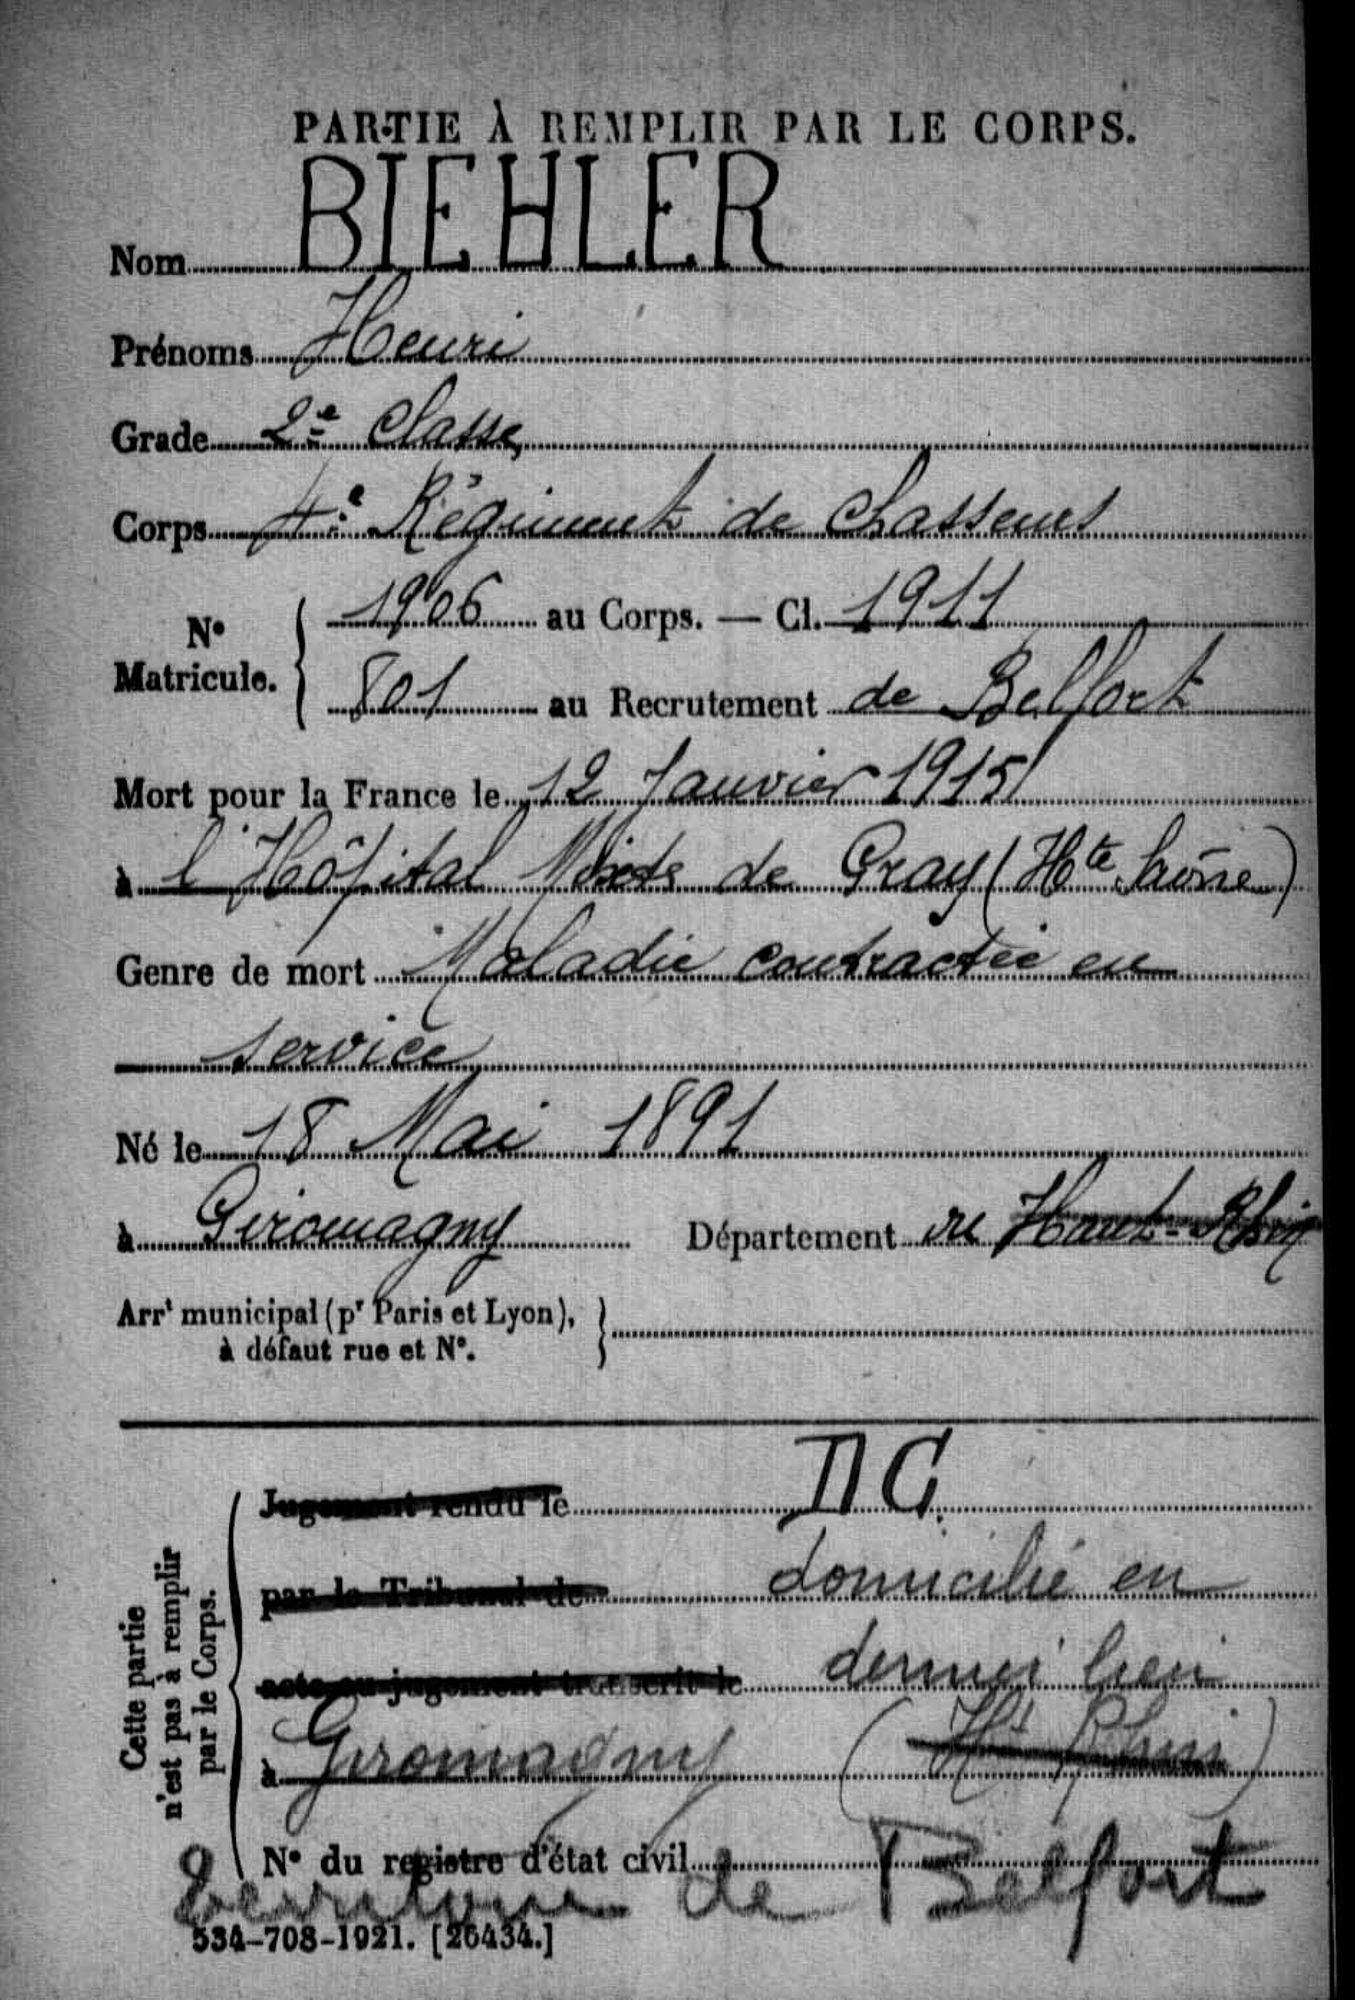 PARTIE À REMPLIR PAR LE CORPS.
Nom BIEHLER
Prénoms Henri
Grade 2e Classe
Corps 4e Régiment de Chasseurs
No Matricule. { 1906 au Corps. — Cl. 1911
801 au Recrutement de Belfort
Mort pour la France le 12 Janvier 1915
à l'Hôpital Mixte de Gray (Hte Saône)
Genre de mort Maladie contractée en
service
Né le 18 Mai 1891
à Giromagny Département du Haut-Rhin
Arrt municipal (pr Paris et Lyon), }
à défaut rue et No.
Cette partie n'est pas à remplir par le Corps.
Jugement rendu le DG.
par le Tribunal de domicilié en
acte ou jugement transcrit le dernier lieu
à Giromagny (Ht Rhin)
No du registre d'état civil
Territoire de Belfort
534-708-1921. [26434.]